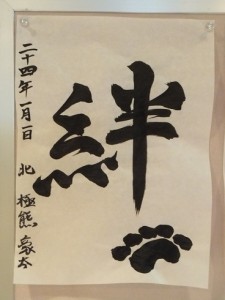 絆
二十四年一月一日 北 極熊 豪太